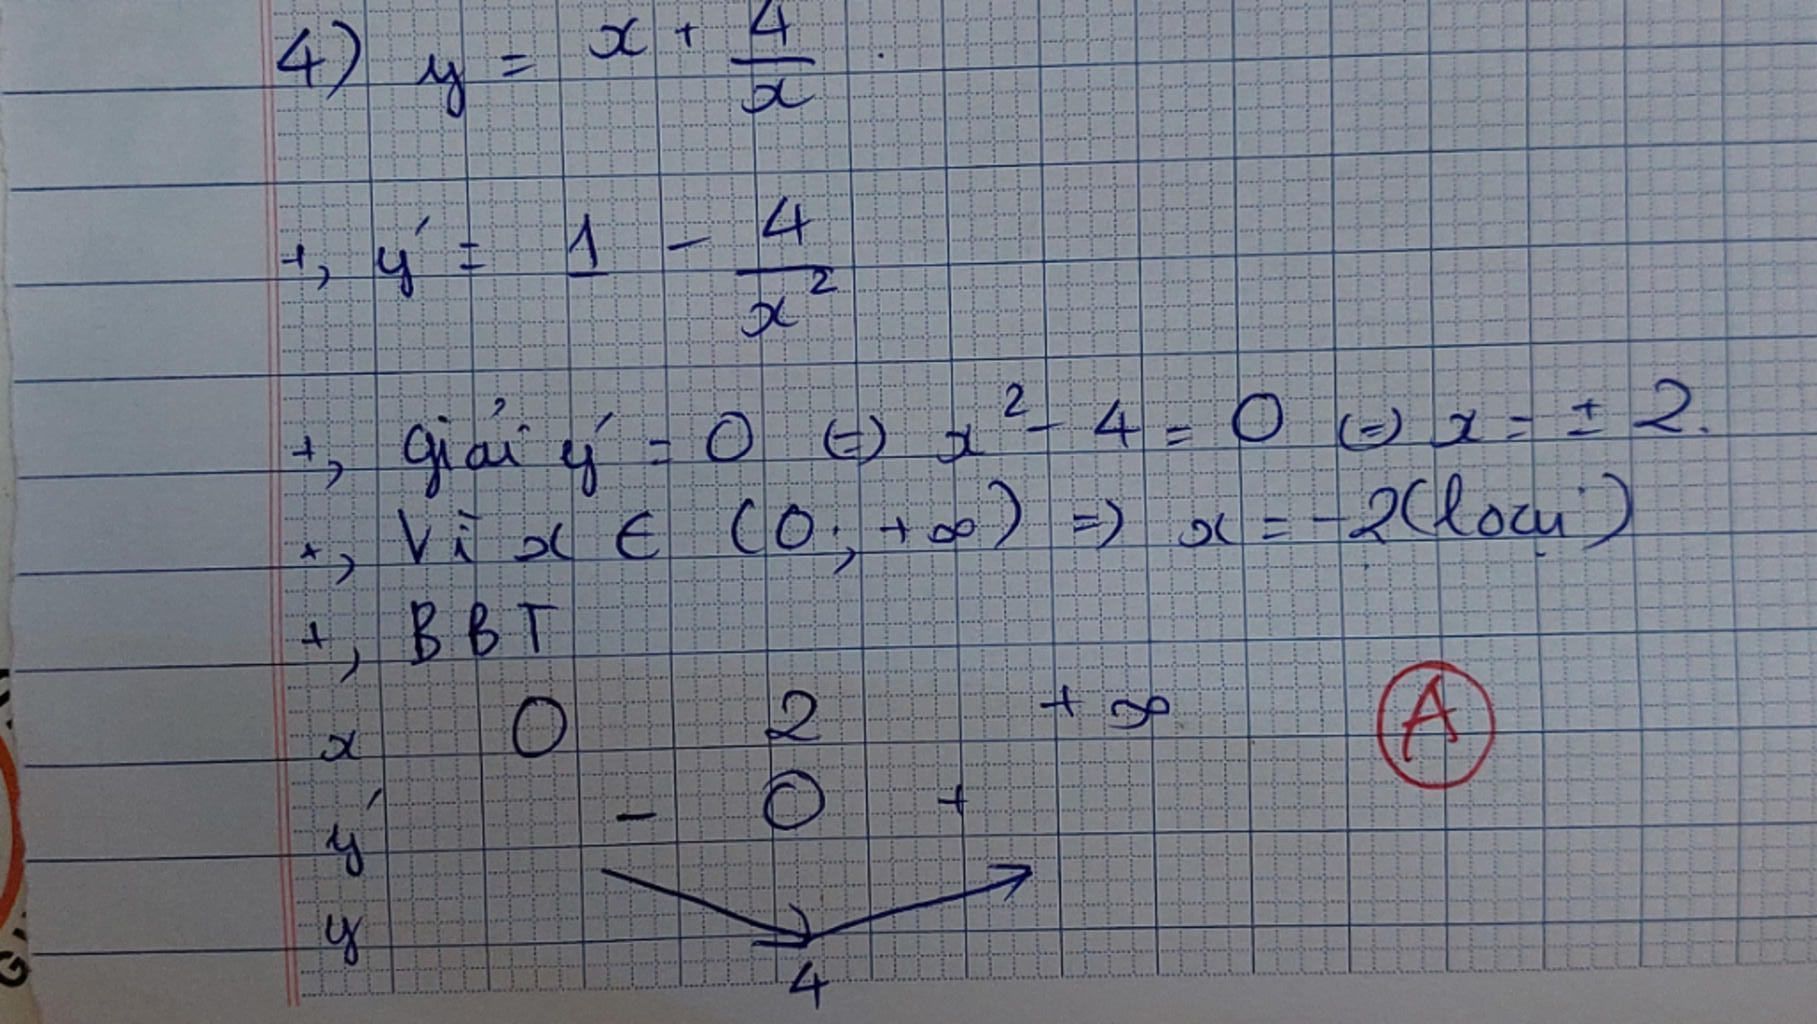 4) y = x + 4/x .
+, y' = 1 - 4/x²
+, Giải y' = 0 (=) x² - 4 = 0 (=) x = ± 2.
+, Vì x ∈ (0 ; +∞) => x = -2 (loại)
+, BBT
x 0 2 +∞
A
y' - 0 +
y
4